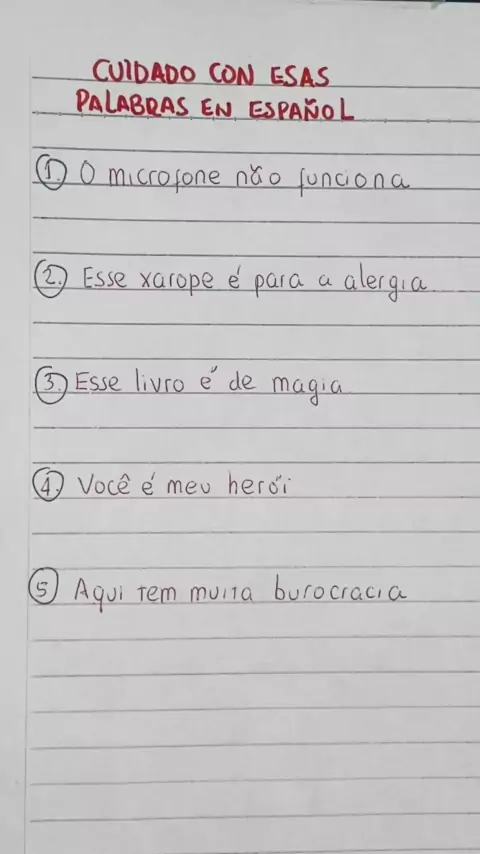 CUIDADO CON ESAS
PALABRAS EN ESPAÑOL
1. O microfone não funciona
2. Esse xarope é para a alergia.
3. Esse livro é de magia
4. Você é meu herói
5 Aqui tem muita burocracia